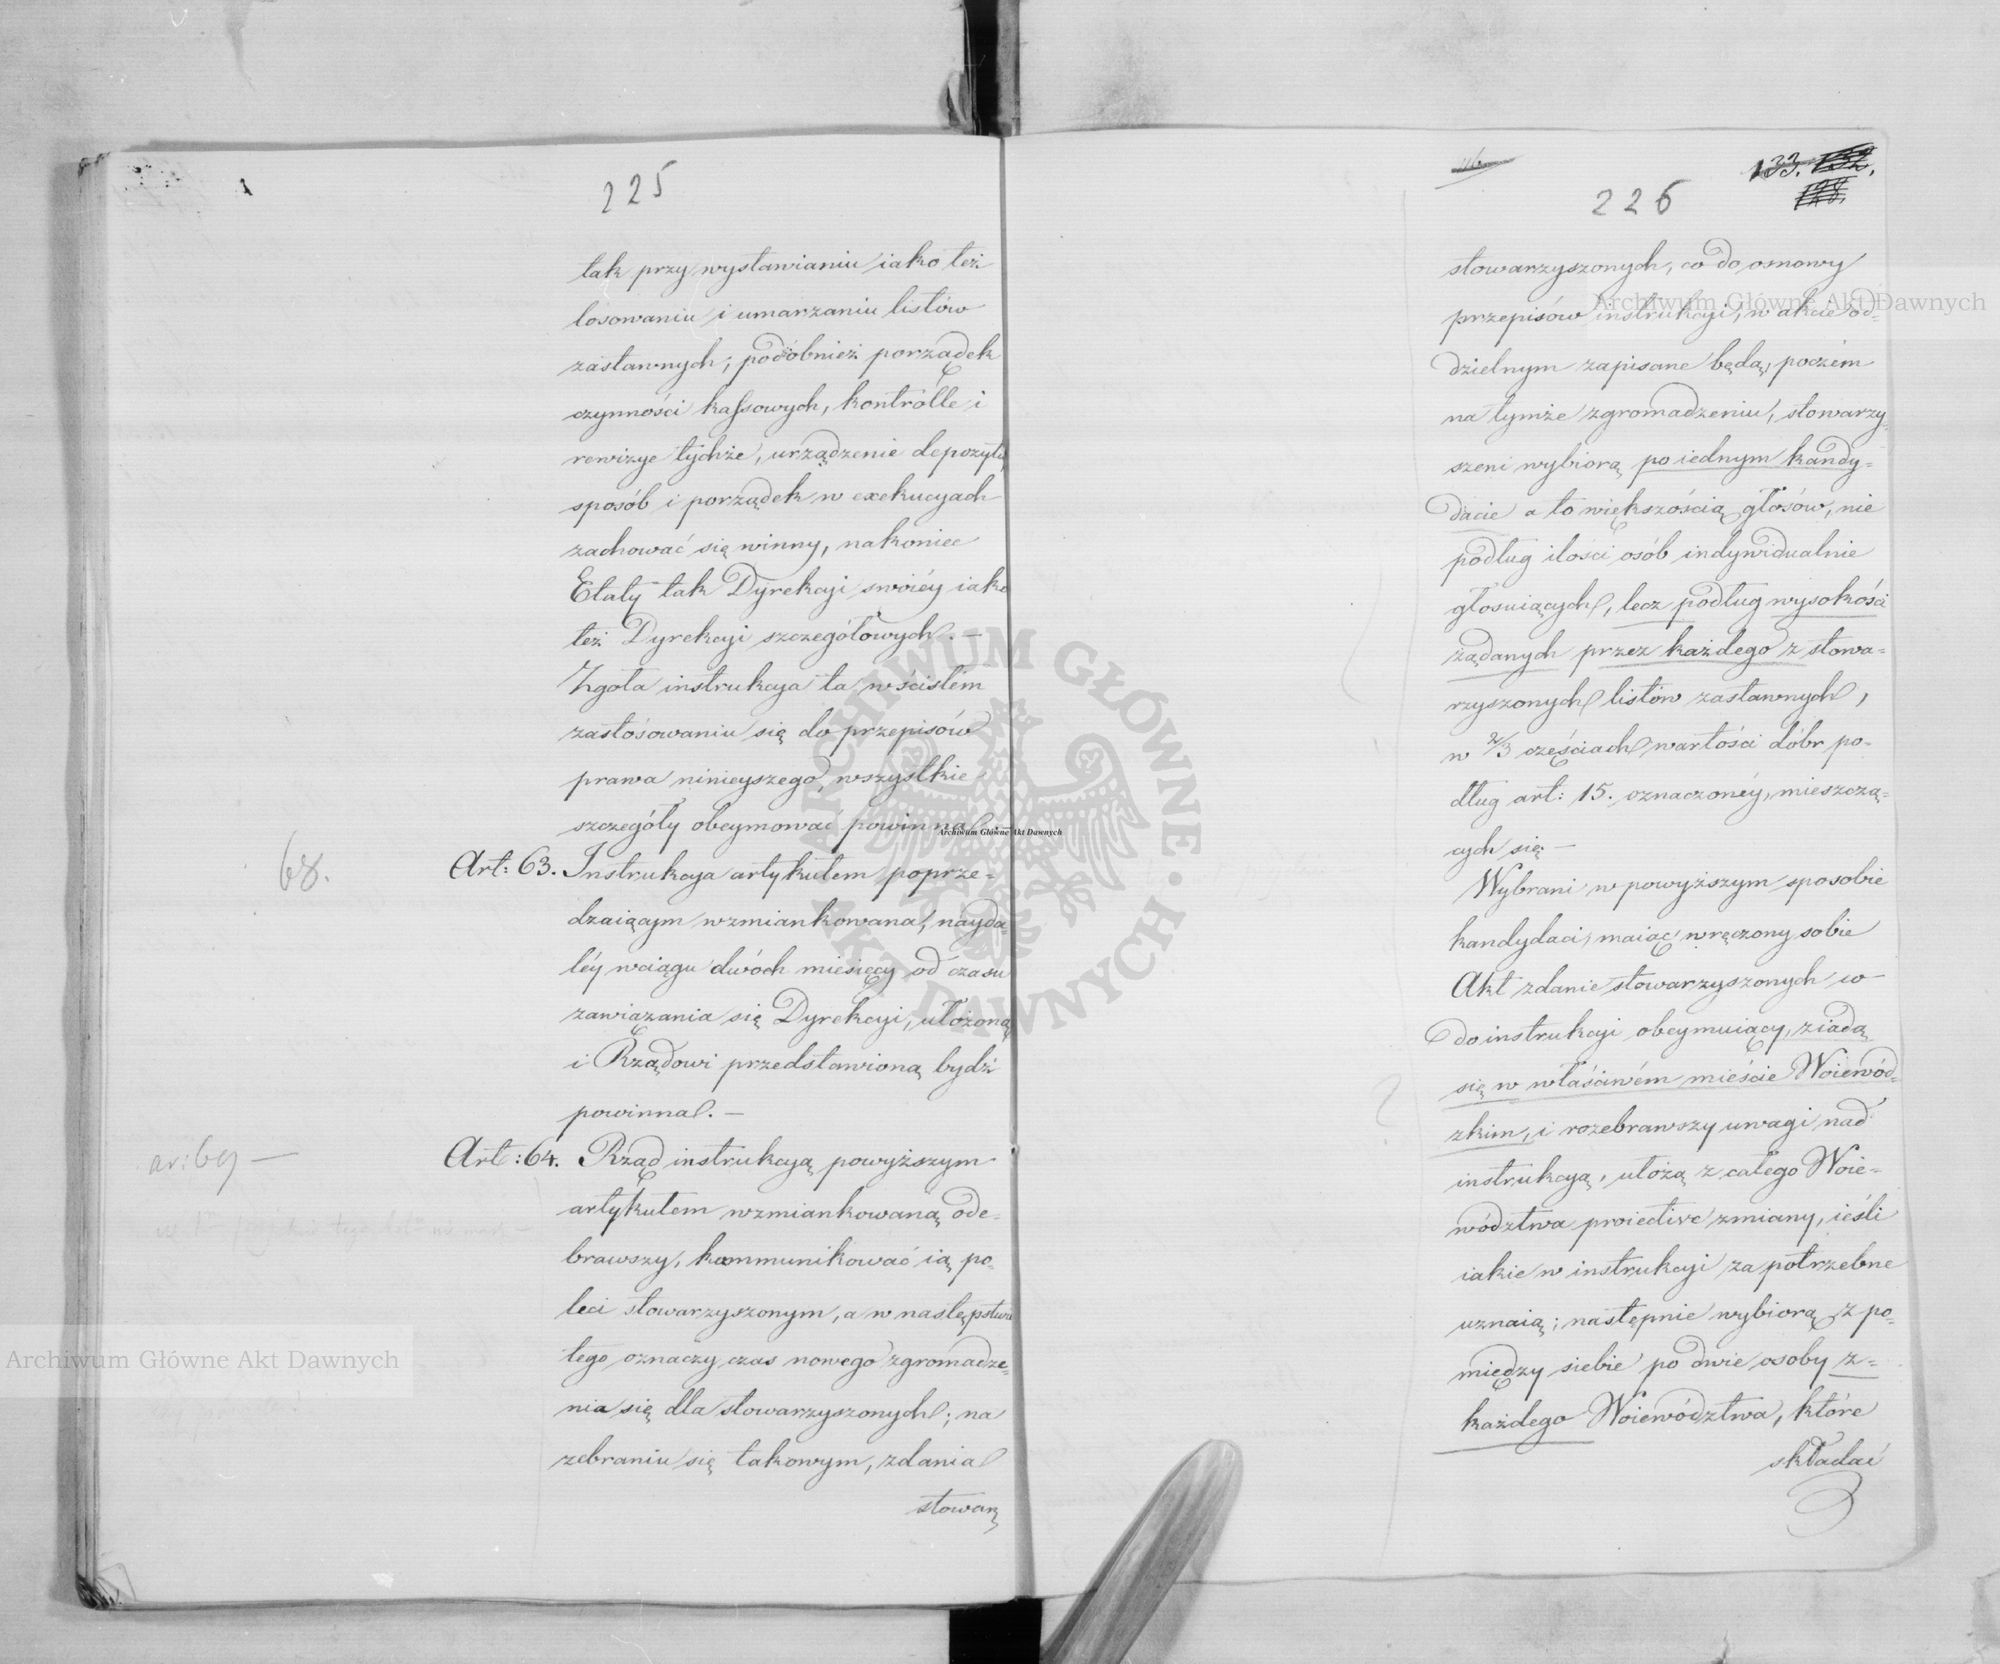 225
tak przy wystawianiu iako też
losowaniu i umarzaniu listów
zastawnych; podobnież porządek
czynności kassowych, kontrolle i
rewizye tychże, urządzenie depozytu,
sposób i porządek w exekucyach
zachować się winny, nakoniec
Etaty tak Dyrekcyi swoiéy iako
też Dyrekcyi szczegółowych. —
Zgoła instrukcya ta, w ścisłém
zastósowaniu się do przepisów
prawa ninieyszego, wszystkie
szczegóły obeymować powinna
68.
Art: 63. Instrukcya artykułem poprze-
dzaiącym wzmiankowana, nayda-
léy wciągu dwóch miesięcy od czasu
zawiązania się Dyrekcyi, ułożoną
i Rządowi przedstawioną bydź
powinna. —
ar: 69 —
Art: 64. Rząd instrukcyą powyższym
artykułem wzmiankowaną ode-
brawszy, kommunikować ią po-
leci stowarzyszonym, a w następstwie
tego oznaczy czas nowego zgromadze-
nia się dla stowarzyszonych; na
zebraniu się takowym, zdania
stowarz
116
133. 132.
128.
226
stowarzyszonych, co do osnowy
przepisów instrukcyi, w akcie od-
dzielnym zapisane będą, poczém
na tymże zgromadzeniu, stowarzy-
szeni wybiorą po iednym kandy-
dacie a to większością głosów, nie
podług ilości osób indywidualnie
głosuiących, lecz podług wysokości
żądanych przez każdego z stowa-
rzyszonych listów zastawnych,
w 2/3 częściach wartości dóbr po-
dług art: 15. oznaczonéy, mieszczą-
cych się —
Wybrani w powyższym sposobie
kandydaci, maiąc wręczony sobie
Akt zdanie stowarzyszonych co
do instrukcyi obeymuiący, ziadą
się w właściwém mieście Woiewód-
zkim, i rozebrawszy uwagi nad
instrukcyą, ułożą z całego Woie-
wództwa proiective zmiany, ieśli
iakie w instrukcyi za potrzebne
uznaią; następnie wybiorą z po-
między siebie po dwie osoby z-
każdego Woiewództwa, które
składać
Archiwum Główne Akt Dawnych
Archiwum Główne Akt Dawnych
Archiwum Główne Akt Dawnych
ARCHIWUM GŁÓWNE · AKT DAWNYCH